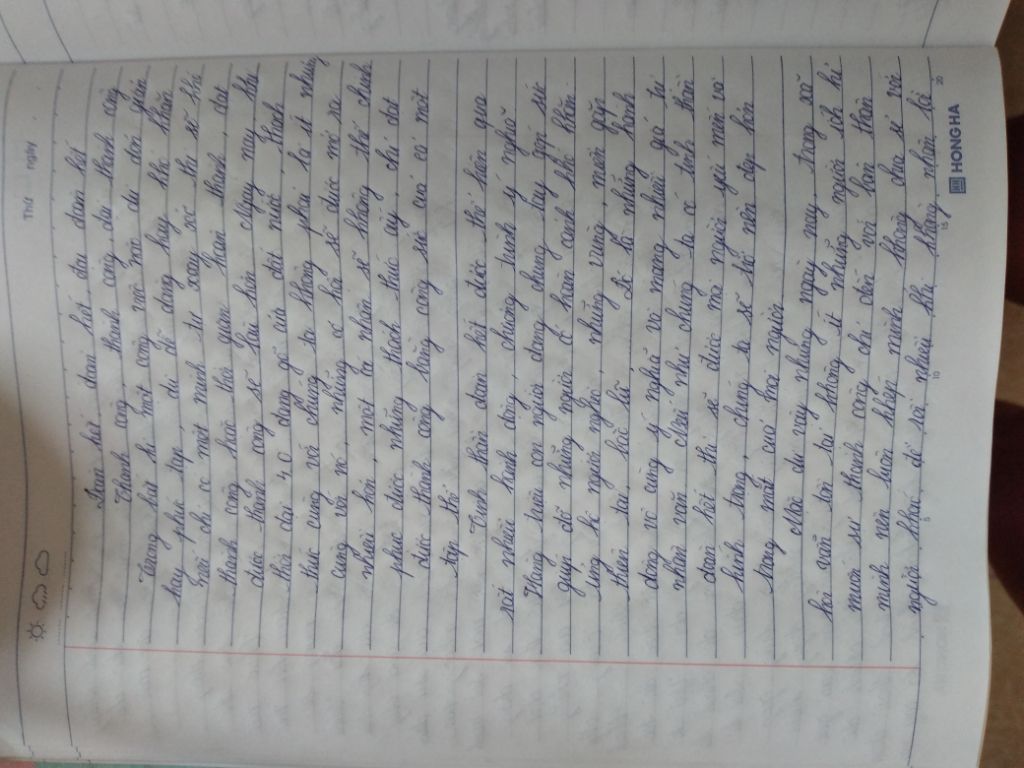 Thứ ngày
Đoàn kết đoàn kết đại đoàn kết
Thành công, thành công, đại thành công
Trong bất kì một công việc nào dù đơn giản
hay phức tạp, dù dễ dàng hay khó khăn
nếu chỉ có một mình tự xoay sở thì sẽ khó
thành công hoặc thời gian hoàn thành, đạt
được thành công sẽ lâu hơn. Ngày nay khi
thời đại 4.0 đang gõ cửa đất nước, thách
thức cùng với chúng ta không phải là ít nhưng
cùng với nó những cơ hội sẽ được mở ra
nhiều hơn, một cá nhân sẽ không thể chinh
phục được những thách thức ấy, chỉ đạt
được thành công bằng công sức của cả một
tập thể
Tinh thần đoàn kết được thể hiện qua
rất nhiều hành động, chương trình ý nghĩa
Hàng triệu con người đang chung tay góp sức
giúp đỡ những người có hoàn cảnh khó khăn.
ủng hộ người nghèo, những vùng, miền gặp
thiên tai bão lũ. Đó là những hành
động vô cùng ý nghĩa và mang nhiều giá trị
nhân văn. Nếu như chúng ta có tinh thần
đoàn kết thì sẽ được mọi người yêu mến và
kính trọng, chúng ta sẽ trở nên đẹp hơn
trong mắt của mọi người
Mặc dù vậy nhưng ngày nay, trong xã
hội vẫn tồn tại không ít những người ích kỉ
muốn sự thành công chỉ đến với bản thân
mình nên luôn khiến mình không chia sẻ với
người khác, để rồi nhiều khi không nhận lại
5 10 15 20
HONG HA